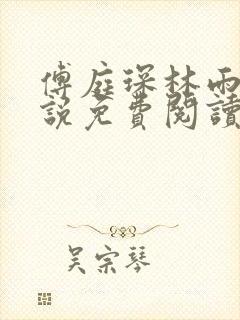 傅庭琛林雨
說免費閱讀
吴宗琴